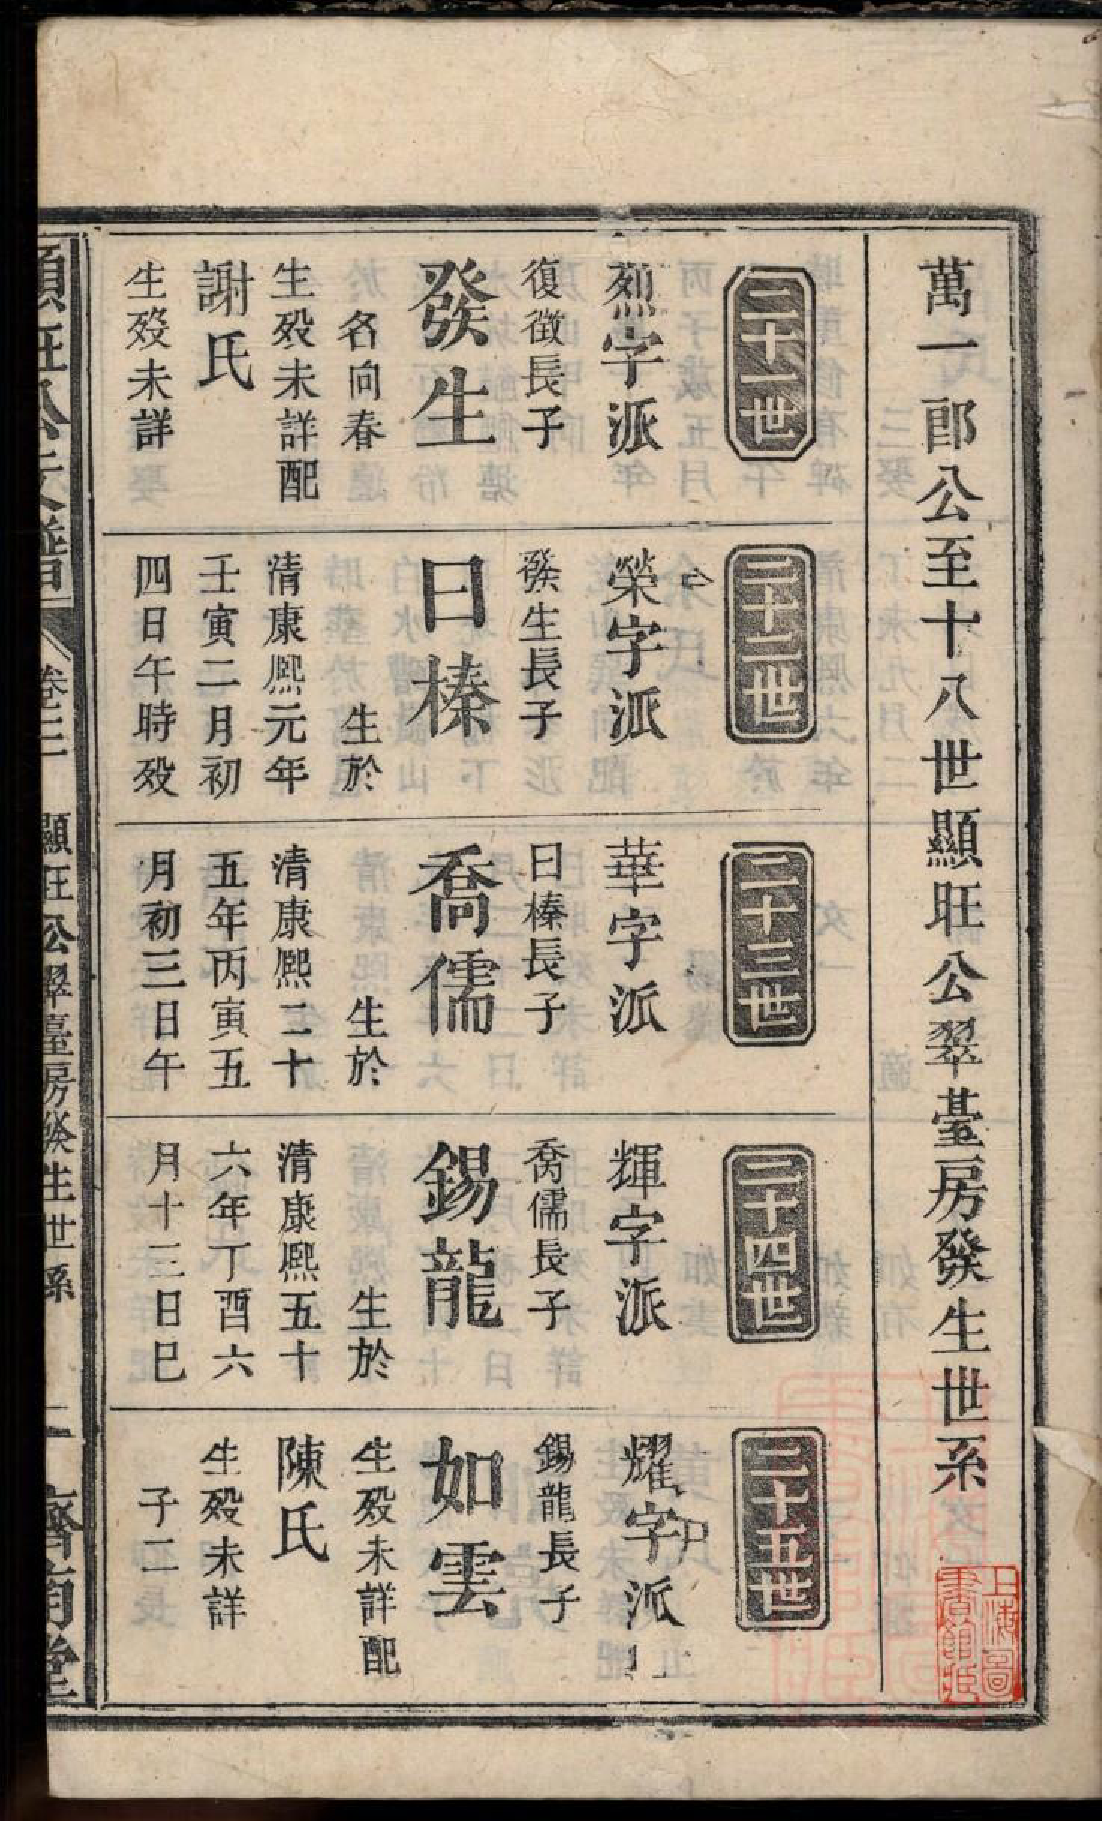 萬一郎公至十八世顯旺公翠臺房發生世系
二十一世
烈字派
復徴長子
發生
名向春
生殁未詳配
謝氏
生殁未詳
二十二世
榮字派
發生長子
曰榛
生於
清康熙元年
壬寅二月初
四日午時殁
二十三世
華字派
曰榛長子
喬儒
生於
清康熙二十
五年丙寅五
月初三日午
二十四世
輝字派
喬儒長子
錫龍
生於
清康熙五十
六年丁酉六
月十三日巳
二十五世
耀字派
錫龍長子
如雲
生殁未詳配
陳氏
生殁未詳
子二
卷二
顯旺公翠臺房發生世系
上海圖書館藏